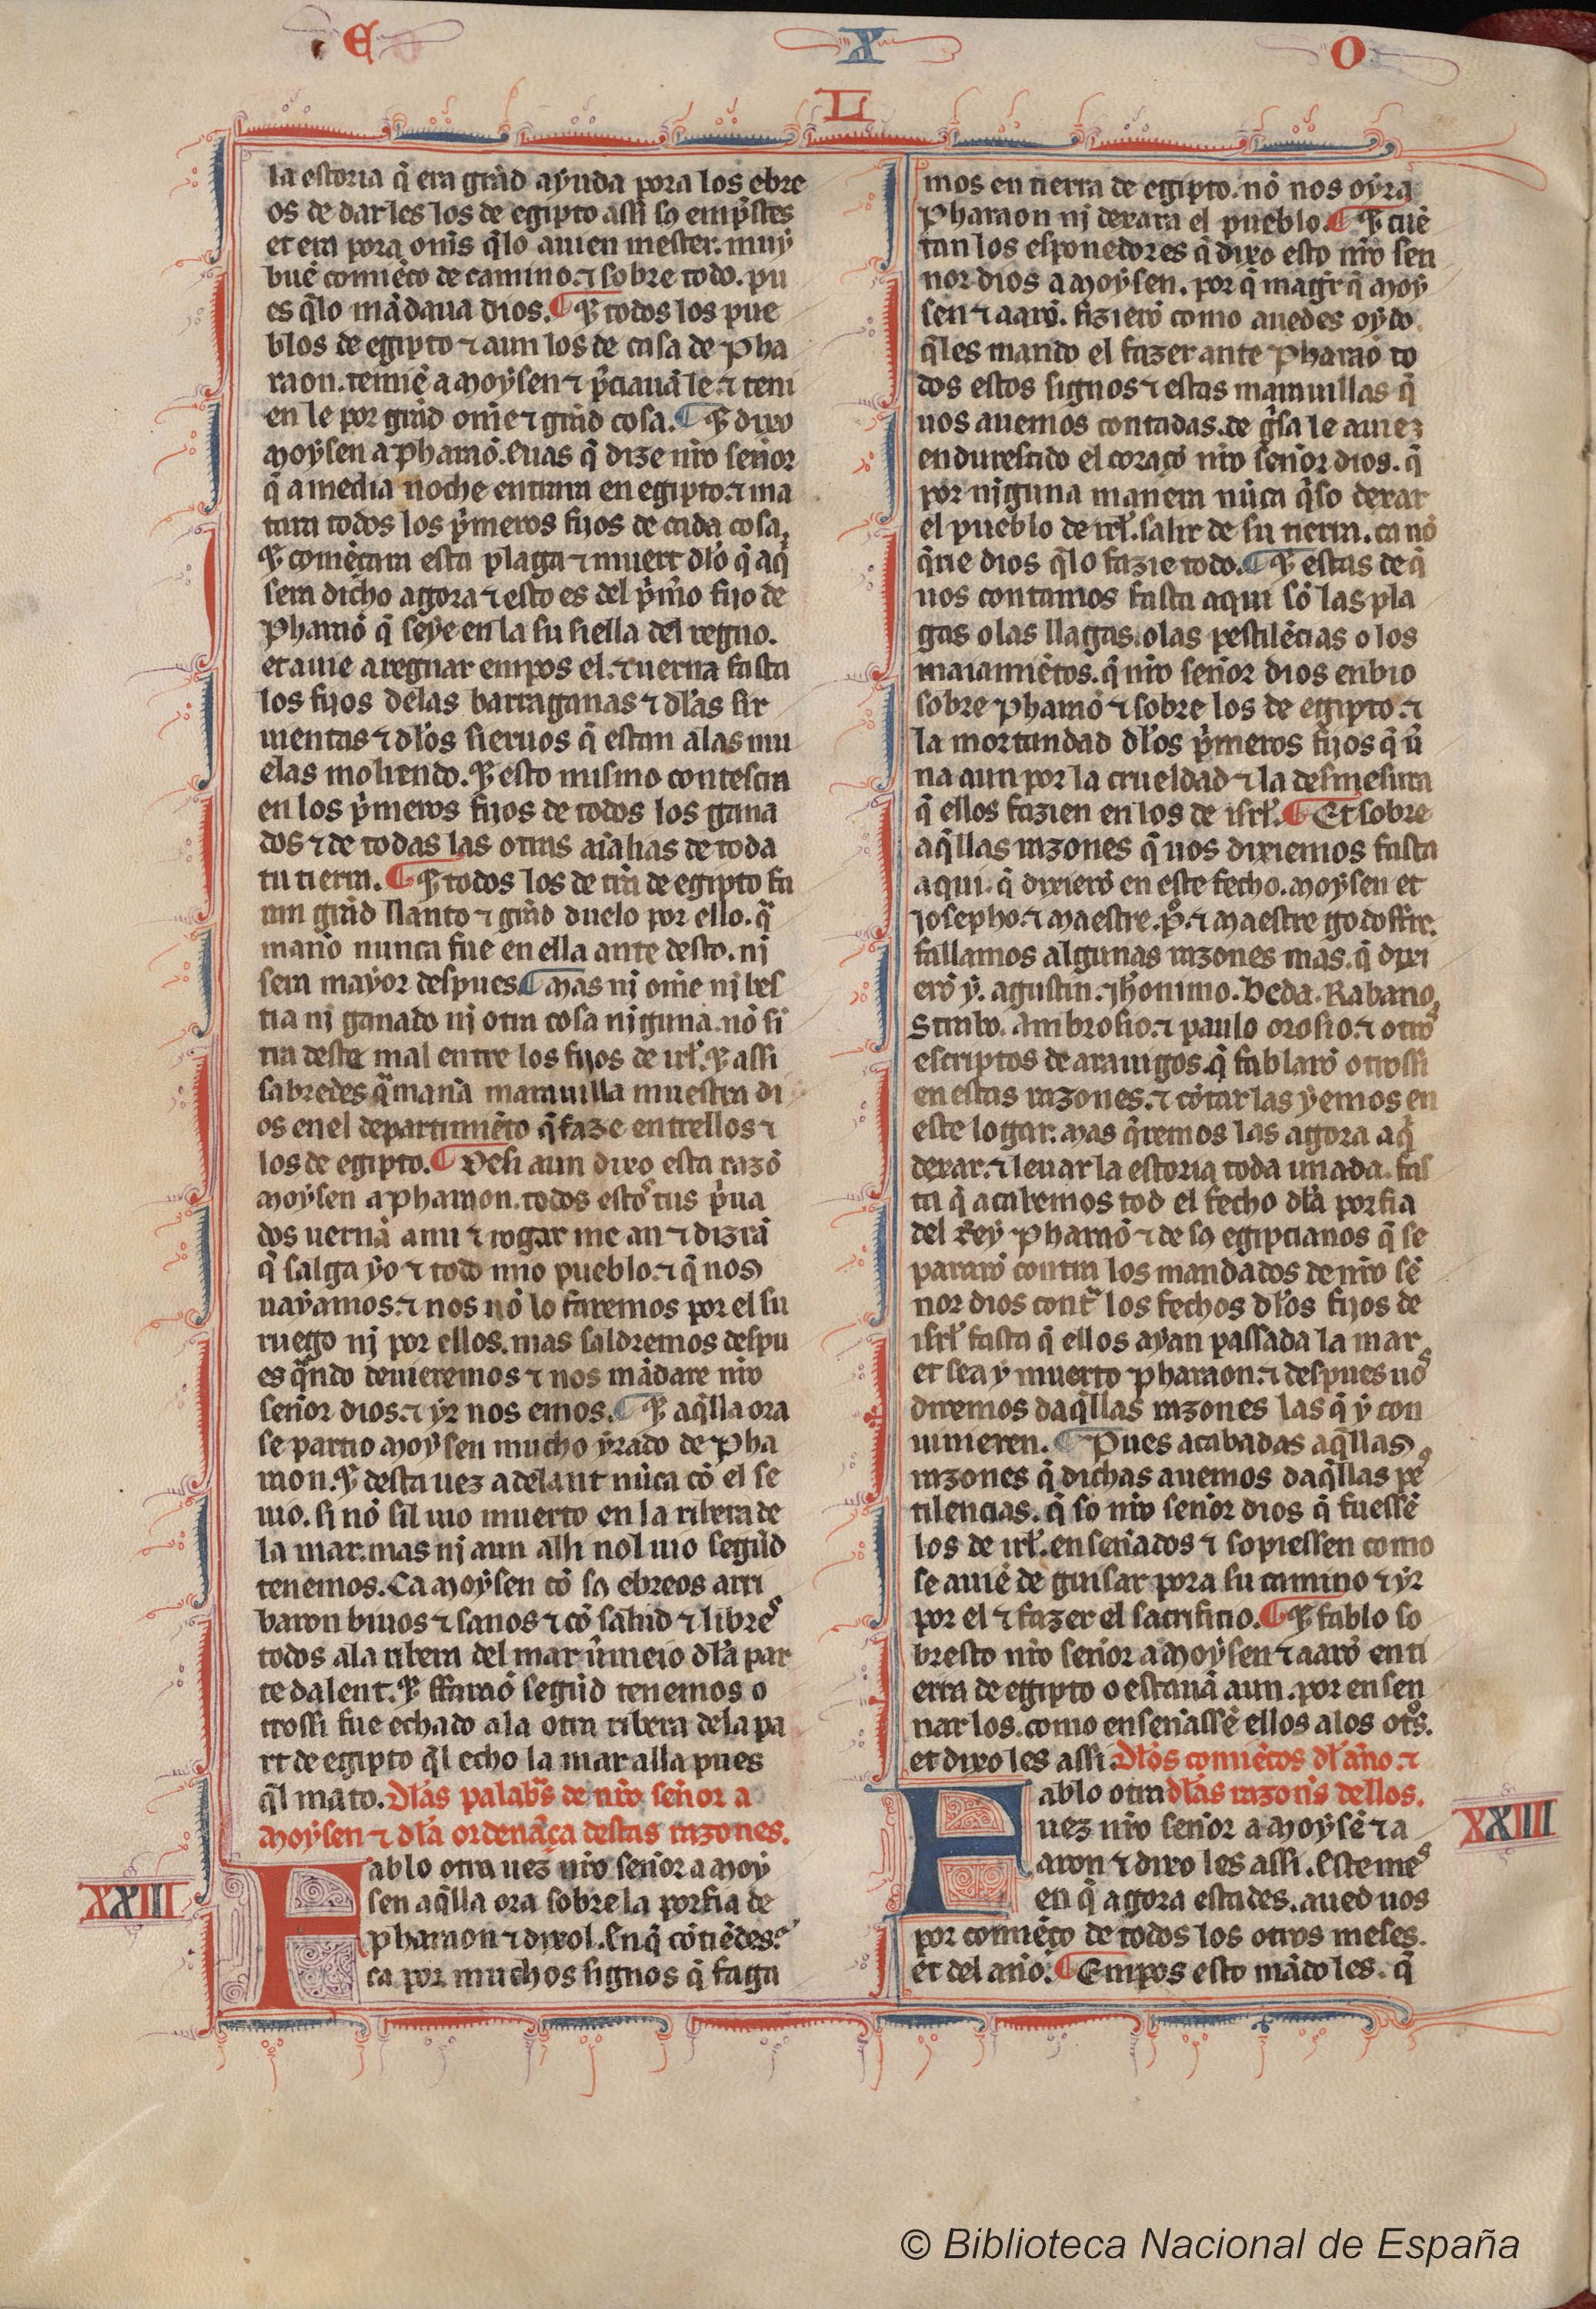 E X O
L
la estoria q̃ era grãd ayuda pora los ebre
os de darles los de egipto assi so emp̃stes
et era pora om̃s q̃lo auien mester. muy
buẽ comiẽço de camino. ⁊ sobre todo. pu
es q̃lo mãdaua dios. ¶ Et todos los pue
blos de egipto ⁊ aun los de casa de Pha
raon. temiẽ a moysen ⁊ p̃ciauã le. ⁊ teni
en le por grãd om̃e ⁊ grãd cosa. ¶ Et dixo
moysen a pharaõ. Euas q̃ dize nr̃o señor
q̃ a media noche entrara en egipto. ⁊ ma
tara todos los p̃meros fijos de cada cosa.
Et comẽçara esta plaga ⁊ muert dl̃o q̃ aq̃
sera dicho agora ⁊ esto es del p̃m̃o fijo de
pharaõ q̃ seye en la su siella del regno.
et auie a regnar empos el. ⁊ uerna fasta
los fijos delas barraganas ⁊ dl̃as sir
uientas ⁊ dl̃os sieruos q̃ estan alas mu
elas moliendo. Et esto mismo contesçra
en los p̃meros fijos de todos los gana
dos ⁊ de todas las otras aĩalias de toda
tu tierra. ¶ Et todos los de tr̃a de egipto fa
ran grãd llanto ⁊ grãd duelo por ello. q̃
maño nunca fue en ella ante desto. nj
sera mayor despues ¶ Mas nj om̃e nj bes
tia nj ganado nj otra cosa njguna. nõ si
tra deste mal entre los fijos de irl̃. Et assi
sabredes q̃ manã marauilla muestra di
os en el departimiẽto q̃ faze entrellos ⁊
los de egipto. ¶ Desi aun dixo esta razõ
moysen a pharaon. todos estos tus p̃ua
dos uernã ami ⁊ rogar me an ⁊ dizrã
q̃ salga yo ⁊ todo mio pueblo. ⁊ q̃ nos
uayamos. ⁊ nos nõ lo faremos por el su
ruego nj por ellos. mas saldremos despu
es q̃ndo deuieremos ⁊ nos mãdare nr̃o
señor dios. ⁊ yr nos emos. ¶ Et aq̃lla ora
se partio moysen mucho yrado de Pha
raon. Et desta uez adelant nũca cõ el se
uio. si nõ sil uio muerto en la ribera de
la mar. mas nj aun alli nol uio segũd
tenemos. Ca moysen cõ so ebreos arri
baron biuos ⁊ sanos ⁊ cõ salud ⁊ libres
todos ala ribera del mar ũmeio dl̃a par
te dalent. Et ffaraõ segũd tenemos o
trossi fue echado ala otra ribera dela pa
rt de egipto q̃l echo la mar alla pues
q̃l mato. Dl̃as palab̃s de nr̃o señor a
moysen ⁊ dl̃a ordenãça destas razones.
XXIII
Fablo otra uez nr̃o señor a moy
sen aq̃lla ora sobre la porfia de
pharaon ⁊ dixol. En q̃ cõtiẽdes.
ca por muchos signos q̃ faga
mos en tierra de egipto. nõ nos oyra
Pharaon nj dexara el pueblo. ¶ Et cuẽ
tan los esponedores q̃ dixo esto nr̃o sen
nor dios a moysen. por q̃ magr̃ q̃ moy
sen ⁊ aarõ. fizierõ como auedes oydo.
q̃les mando el fazer ante Pharaõ to
dos estos signos ⁊ estas marauillas q̃
uos auemos contadas. de g̃sa le auiez
endurescido el coraçõ nr̃o señor dios. q̃
por njguna manera nũca q̃so dexar
el pueblo de irl̃. salir de su tierra. ca nõ
q̃rie dios q̃lo fazie todo. ¶ Et estas de q̃
uos contamos fasta aqui sõ las pla
gas o las llagas. o las pestilẽcias o los
maiamiẽtos. q̃ nr̃o señor dios enbio
sobre pharaõ ⁊ sobre los de egipto. ⁊
la mortandad dl̃os p̃meros fijos q̃ ũ
na aun por la crueldad ⁊ la desmesura
q̃ ellos fazien en los de isrl̃. ¶ Et sobre
aq̃llas razones q̃ uos dixiemos fasta
aqui. q̃ dixierõ en este fecho. moysen et
josepho. ⁊ maestre. p̃. ⁊ maestre godoffre.
fallamos algunas razones mas. q̃ dixi
erõ y. agustin. jhõnimo. Beda. Rabano,
Strabo. Ambrosio. ⁊ paulo orosio. ⁊ otros
escriptos de arauigos. q̃ fablarõ otrossi
en estas razones. ⁊ cõtar las yemos en
este logar. mas q̃remos las agora aq̃
dexar. ⁊ leuar la estoria toda unada. fas
ta q̃ acabemos tod el fecho dl̃a porfia
del rey pharaõ ⁊ de so egipcianos q̃ se
pararõ contra los mandados de nr̃o sẽ
nor dios cont̃ los fechos dl̃os fijos de
isrl̃ fasta q̃ ellos ayan passada la mar.
et sea y muerto pharaon. ⁊ despues uos
diremos daq̃llas razones las q̃ y con
uinieren. ¶ Pues acabadas aq̃llas
razones q̃ dichas auemos daq̃llas pes
tilencias. q̃so nr̃o señor dios q̃ fuessẽ
los de irl̃. enseñados ⁊ sopiessen como
se auiẽ de guisar pora su camino ⁊ yr
por el ⁊ fazer el sacrificio. ¶ Et fablo so
bresto nr̃o señor a moysen ⁊ aarõ en ti
erra de egipto o estauã aun. por ensen
nar los. como enseñassẽ ellos alos otros.
et dixo les assi. Dl̃os comiẽços dl̃ año. ⁊
dl̃as razoñs dellos.
XXIIII
Fablo otra
uez nr̃o señor a moysẽ ⁊ a
aron ⁊ dixo les assi. Este mes
en q̃ agora estades. aued uos
por comiẽço de todos los otros meses.
et del año. ¶ Empos esto mãdo les. q̃
© Biblioteca Nacional de España